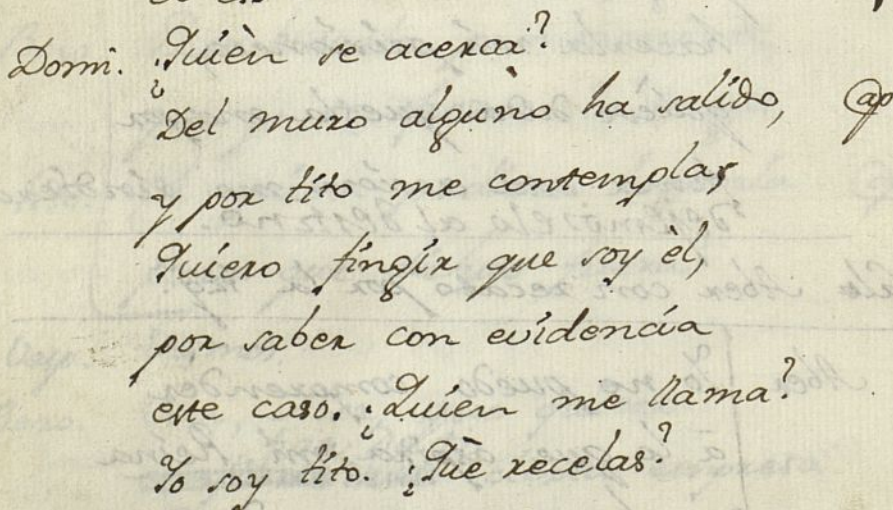 Domi. ¿Quièn se acerca?
Del muro alguno ha salido, ap
y por tito me contempla,
Quiero fingir que soy èl,
por saber con evidencia
este caso. ¿Quien me llama?
Yo soy tito. ¿Què recelas?